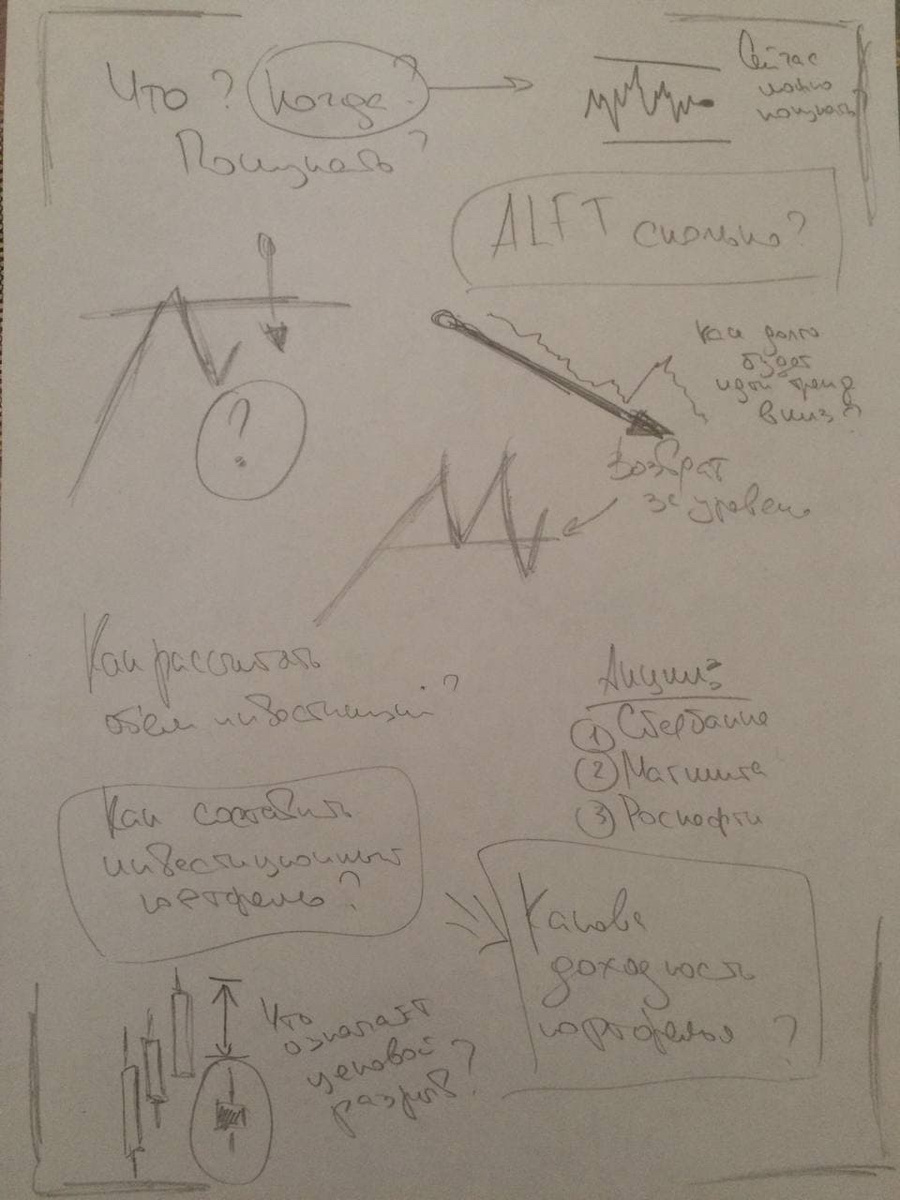 Что? Когда?
Покупать?
Сейчас
можно
покупать
ALFT сколько?
как долго
будет
идти тренд
вниз?
возврат
за уровень
Как рассчитать
объем инвестиций?
Акции:
① Сбербанка
② Магнита
③ Роснефти
Как составить
инвестиционный
портфель?
Какова
доходность
портфеля?
Что
означает
ценовой
разрыв?
?